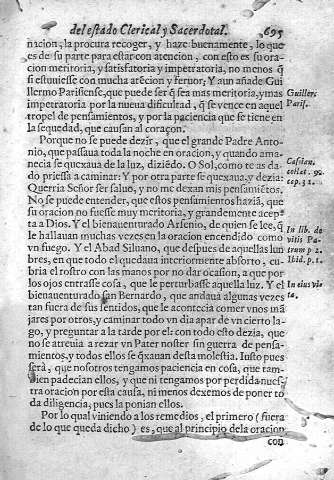 del estado Clerical y Sacerdotal. 695
nacion, la procura recoger, y haze buenamente, lo que
es de su parte para estar con atencion, con esto es su ora
cion meritoria, y satisfatoria y impetratoria, no menos q̃
si estuuiesse con mucha atẽcion y feruor: Y aun añade Gui
llermo Parisiense, que puede ser q̃ sea mas meritoria, y mas
impetratoria por la nueua dificultad, q̃ se vence en aquel
tropel de pensamientos, y por la paciencia que se tiene en
la sequedad, que causan al coraçon.
Guiller.
Paris.
Porque no se puede dezir, que el grande Padre Anto-
nio, que passaua toda la noche en oracion, y quando ama-
necia se quexaua de la luz, diziẽdo. O Sol, como te as da-
do priessa a caminar: Y por otra parte se quexaua, y dezia:
Querria Señor ser saluo, y no me dexan mis pensamiẽtos.
No se puede entender, que estos pensamientos haziã, que
su oracion no fuesse muy meritoria, y grandemente acep-
ta a Dios. Y el bienauenturado Arsenio, de quien se lee, q̃
le hallauan muchas vezes en la oracion encendido como
vn fuego. Y el Abad Siluano, que despues de aquellas lum
bres, en que todo el quedaua interiormente absorto, cu-
bria el rostro con las manos por no dar ocasion, a que por
los ojos entrasse cosa, que le perturbasse aquella luz. Y el
bienauenturado San Bernardo, que andaua algunas vezes
tan fuera de sus sentidos, que le acontecia comer vnos mã
jares por otros, y caminar todo vn dia apar de vn cierto la-
go, y preguntar a la tarde por el: con todo esto dezia, que
no se atreuia a rezar vn Pater noster sin guerra de pensa-
mientos, y todos ellos se q̃xauan desta molestia. Iusto pues
serà, que nosotros tengamos paciencia en cosa, que tam-
bien padecian ellos, y que ni tengamos por perdida nues-
tra oracion por esta causa, ni menos dexemos de poner to
da diligencia, pues la ponian ellos.
Cassian.
collat. 9.
cap. 31.
In lib. de
vitis Pa-
tram p 2.
Ibid. p 1.
In eius vi
ta.
Por lo qual viniendo a los remedios, el primero (fuera
de lo que queda dicho) es, que al principio de la oracion
con